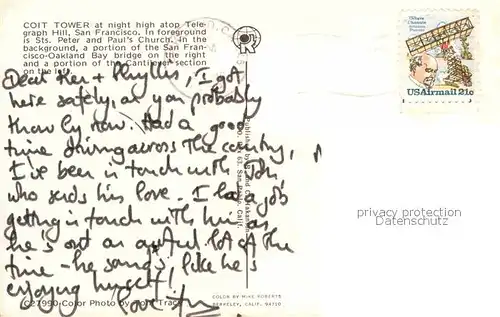 COIT TOWER at night high atop Tele-
graph Hill, San Francisco. In foreground
is Sts. Peter and Paul's Church. In the
background, a portion of the San Fran-
cisco-Oakland Bay bridge on the right
and a portion of the Cantilever section
on the left.
Dear Ken + Phyllis, I got
here safely, as you probably
know by now. Had a good
time driving across the country,
I've been in touch with John,
who sends his love. I had a job
getting in touch with him as
he's out an awful lot of the
time - he sounds like he's
enjoying himself!
C27990-Color Photo by Tracy
Published by
San Francisco, Calif.
COLOR BY MIKE ROBERTS
BERKELEY, CALIF. 94710
R
Octave Chanute
Aviation Pioneer
USAirmail 21c
privacy protection
Datenschutz